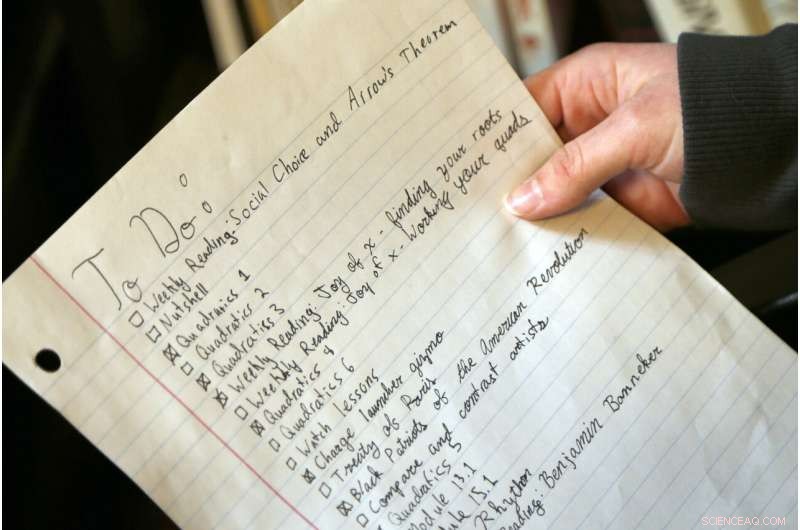 To Do:
☐ Weekly Reading: Social Choice and Arrow's Theorem
☐ Nutshell
☒ Quadratics 1
☐ Quadratics 2
☒ Quadratics 3
☒ Weekly Reading: Joy of x - finding your roots
☐ Weekly Reading: Joy of x - working your quads
☒ Quadratics 4
☐ Quadratics 6
☐ Watch lessons
☒ Charge launcher gizmo
☐ Treaty of Paris
☒ Black Patriots of the American Revolution
☐ Compare and contrast artists
Quadratics 5
Module 13.1
15.1
Rhythm
Reading: Benjamin Banneker
SCIENCEAQ.COM